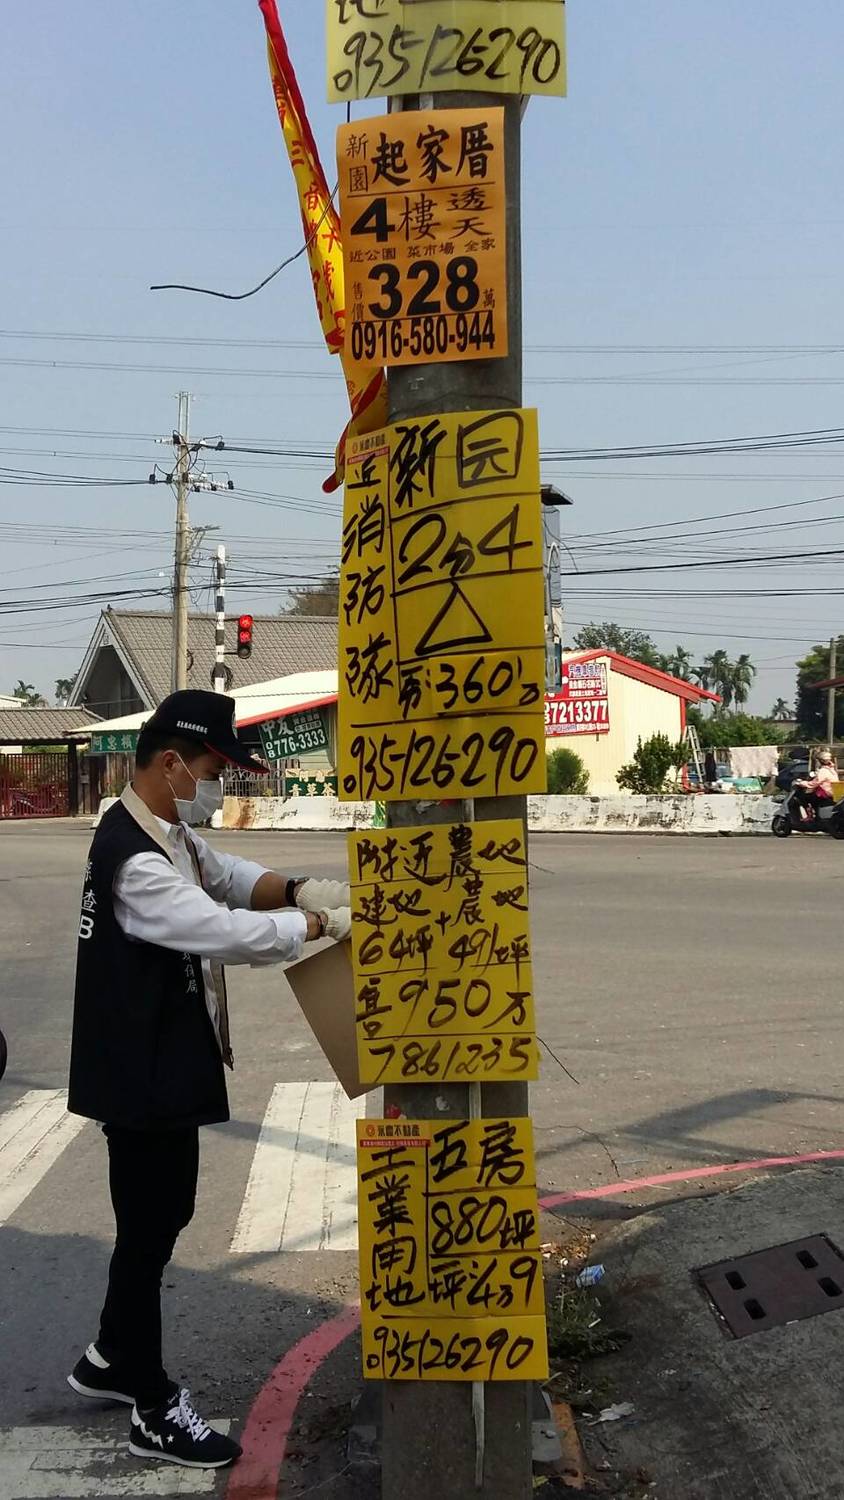 地
0935126290
新園
起家厝
4樓
透天
近公園 菜市場 全家
售價
328
萬
0916-580-944
永慶不動産
近消防隊
新园
2分4
△
360万
0935-126290
附近農地
建地+農地
64坪 491坪
售950万
7861235
永慶不動産
工業用地
五房
880坪
坪:4万9
0935126290
中友
8776-3333
青草茶
87213377
查
B